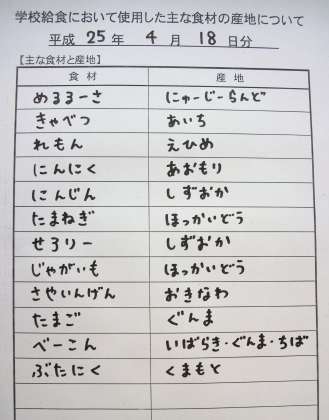 学校給食において使用した主な食材の産地について
平成 25 年 4 月 18 日分
【主な食材と産地】
食材 産地
めるるーさ にゅーじーらんど
きゃべつ あいち
れもん えひめ
にんにく あおもり
にんじん しずおか
たまねぎ ほっかいどう
せろりー しずおか
じゃがいも ほっかいどう
さやいんげん おきなわ
たまご ぐんま
べーこん いばらき・ぐんま・ちば
ぶたにく くまもと